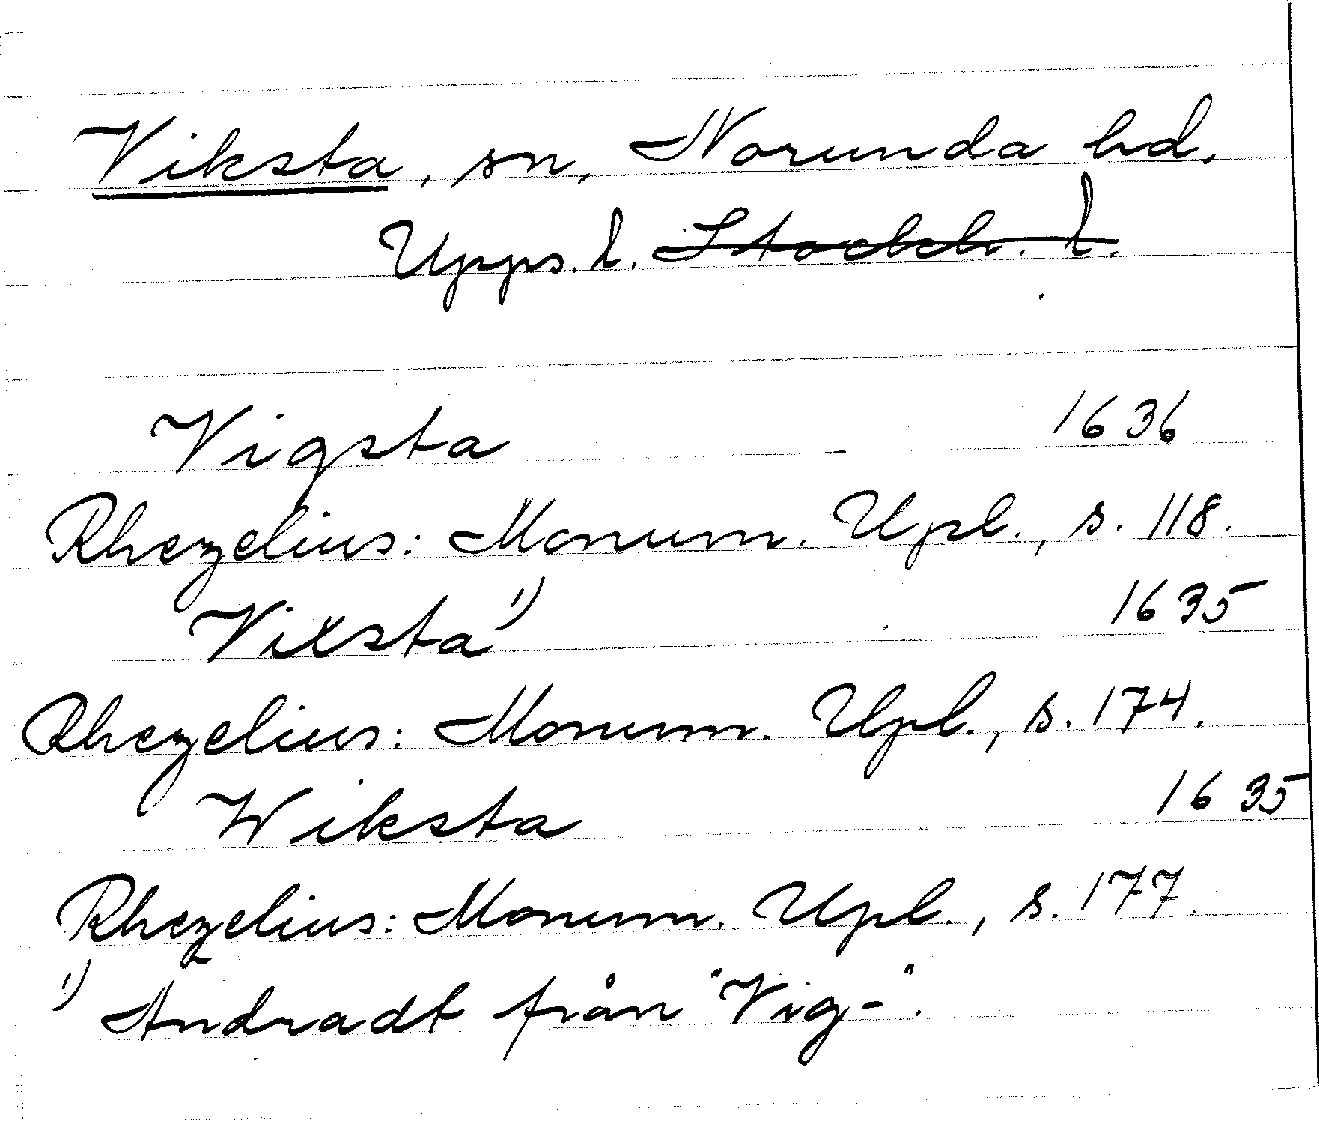 Viksta, sn, Norunda hd,
Upps. l. Stockh. l.
Vigsta 1636
Rhezelius: Monum. Upl., s. 118.
Vixsta¹⁾ 1635
Rhezelius: Monum. Upl., s. 174.
Wiksta 1635
Rhezelius: Monum. Upl., s. 177.
¹⁾ Andradt från "Vig-".